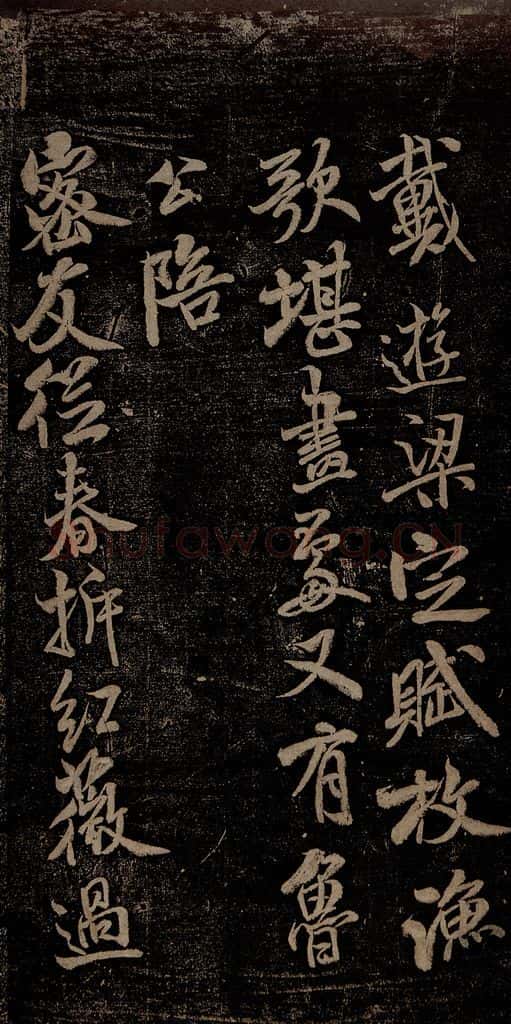 戴遊梁定賦枚漁
歌堪畫處又有魯
公陪
密友從春拆紅薇過
Shufawang.CN